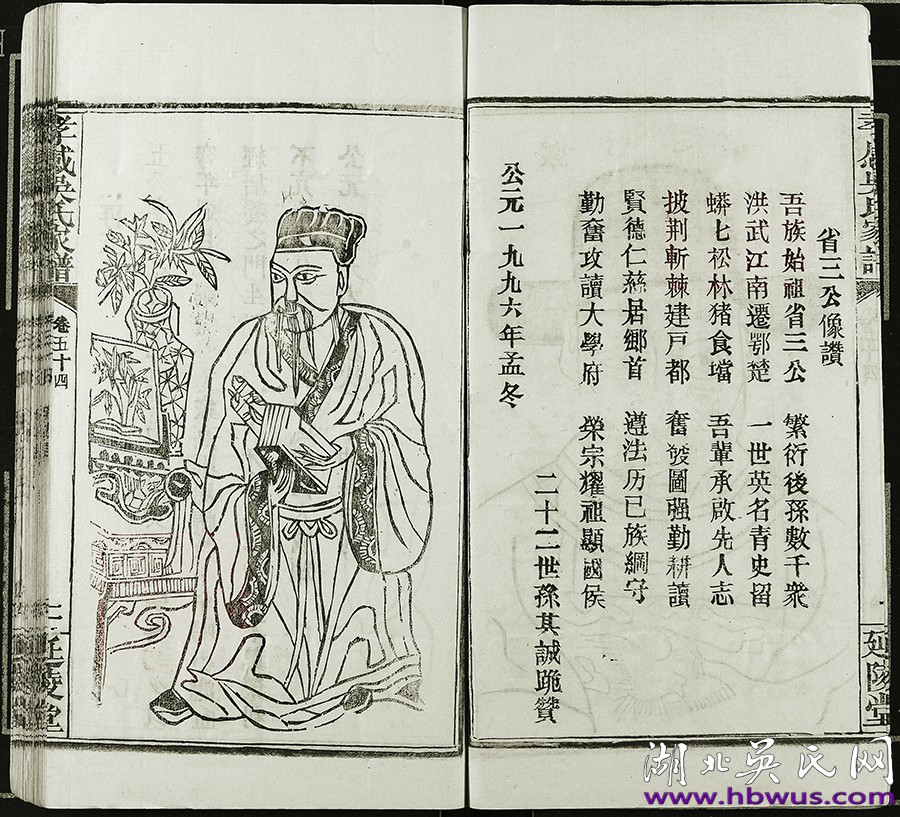 省三公像讚
吾族始祖省三公 繁衍後孫數千衆
洪武江南遷鄂楚 一世英名青史留
蟒七松林猪食壋 吾輩承啟先人志
披荆斬棘建戸都 奮發圖强勤耕讀
賢德仁慈居鄉首 遵法历已族綱守
勤奮攻讀大學府 榮宗耀祖顯國侯
公元一九九六年孟冬
二十二世孫其誠跪贊
延陵堂
孝感吳氏家譜
卷五十四
延陵堂
湖北吴氏网
www.hbwus.com